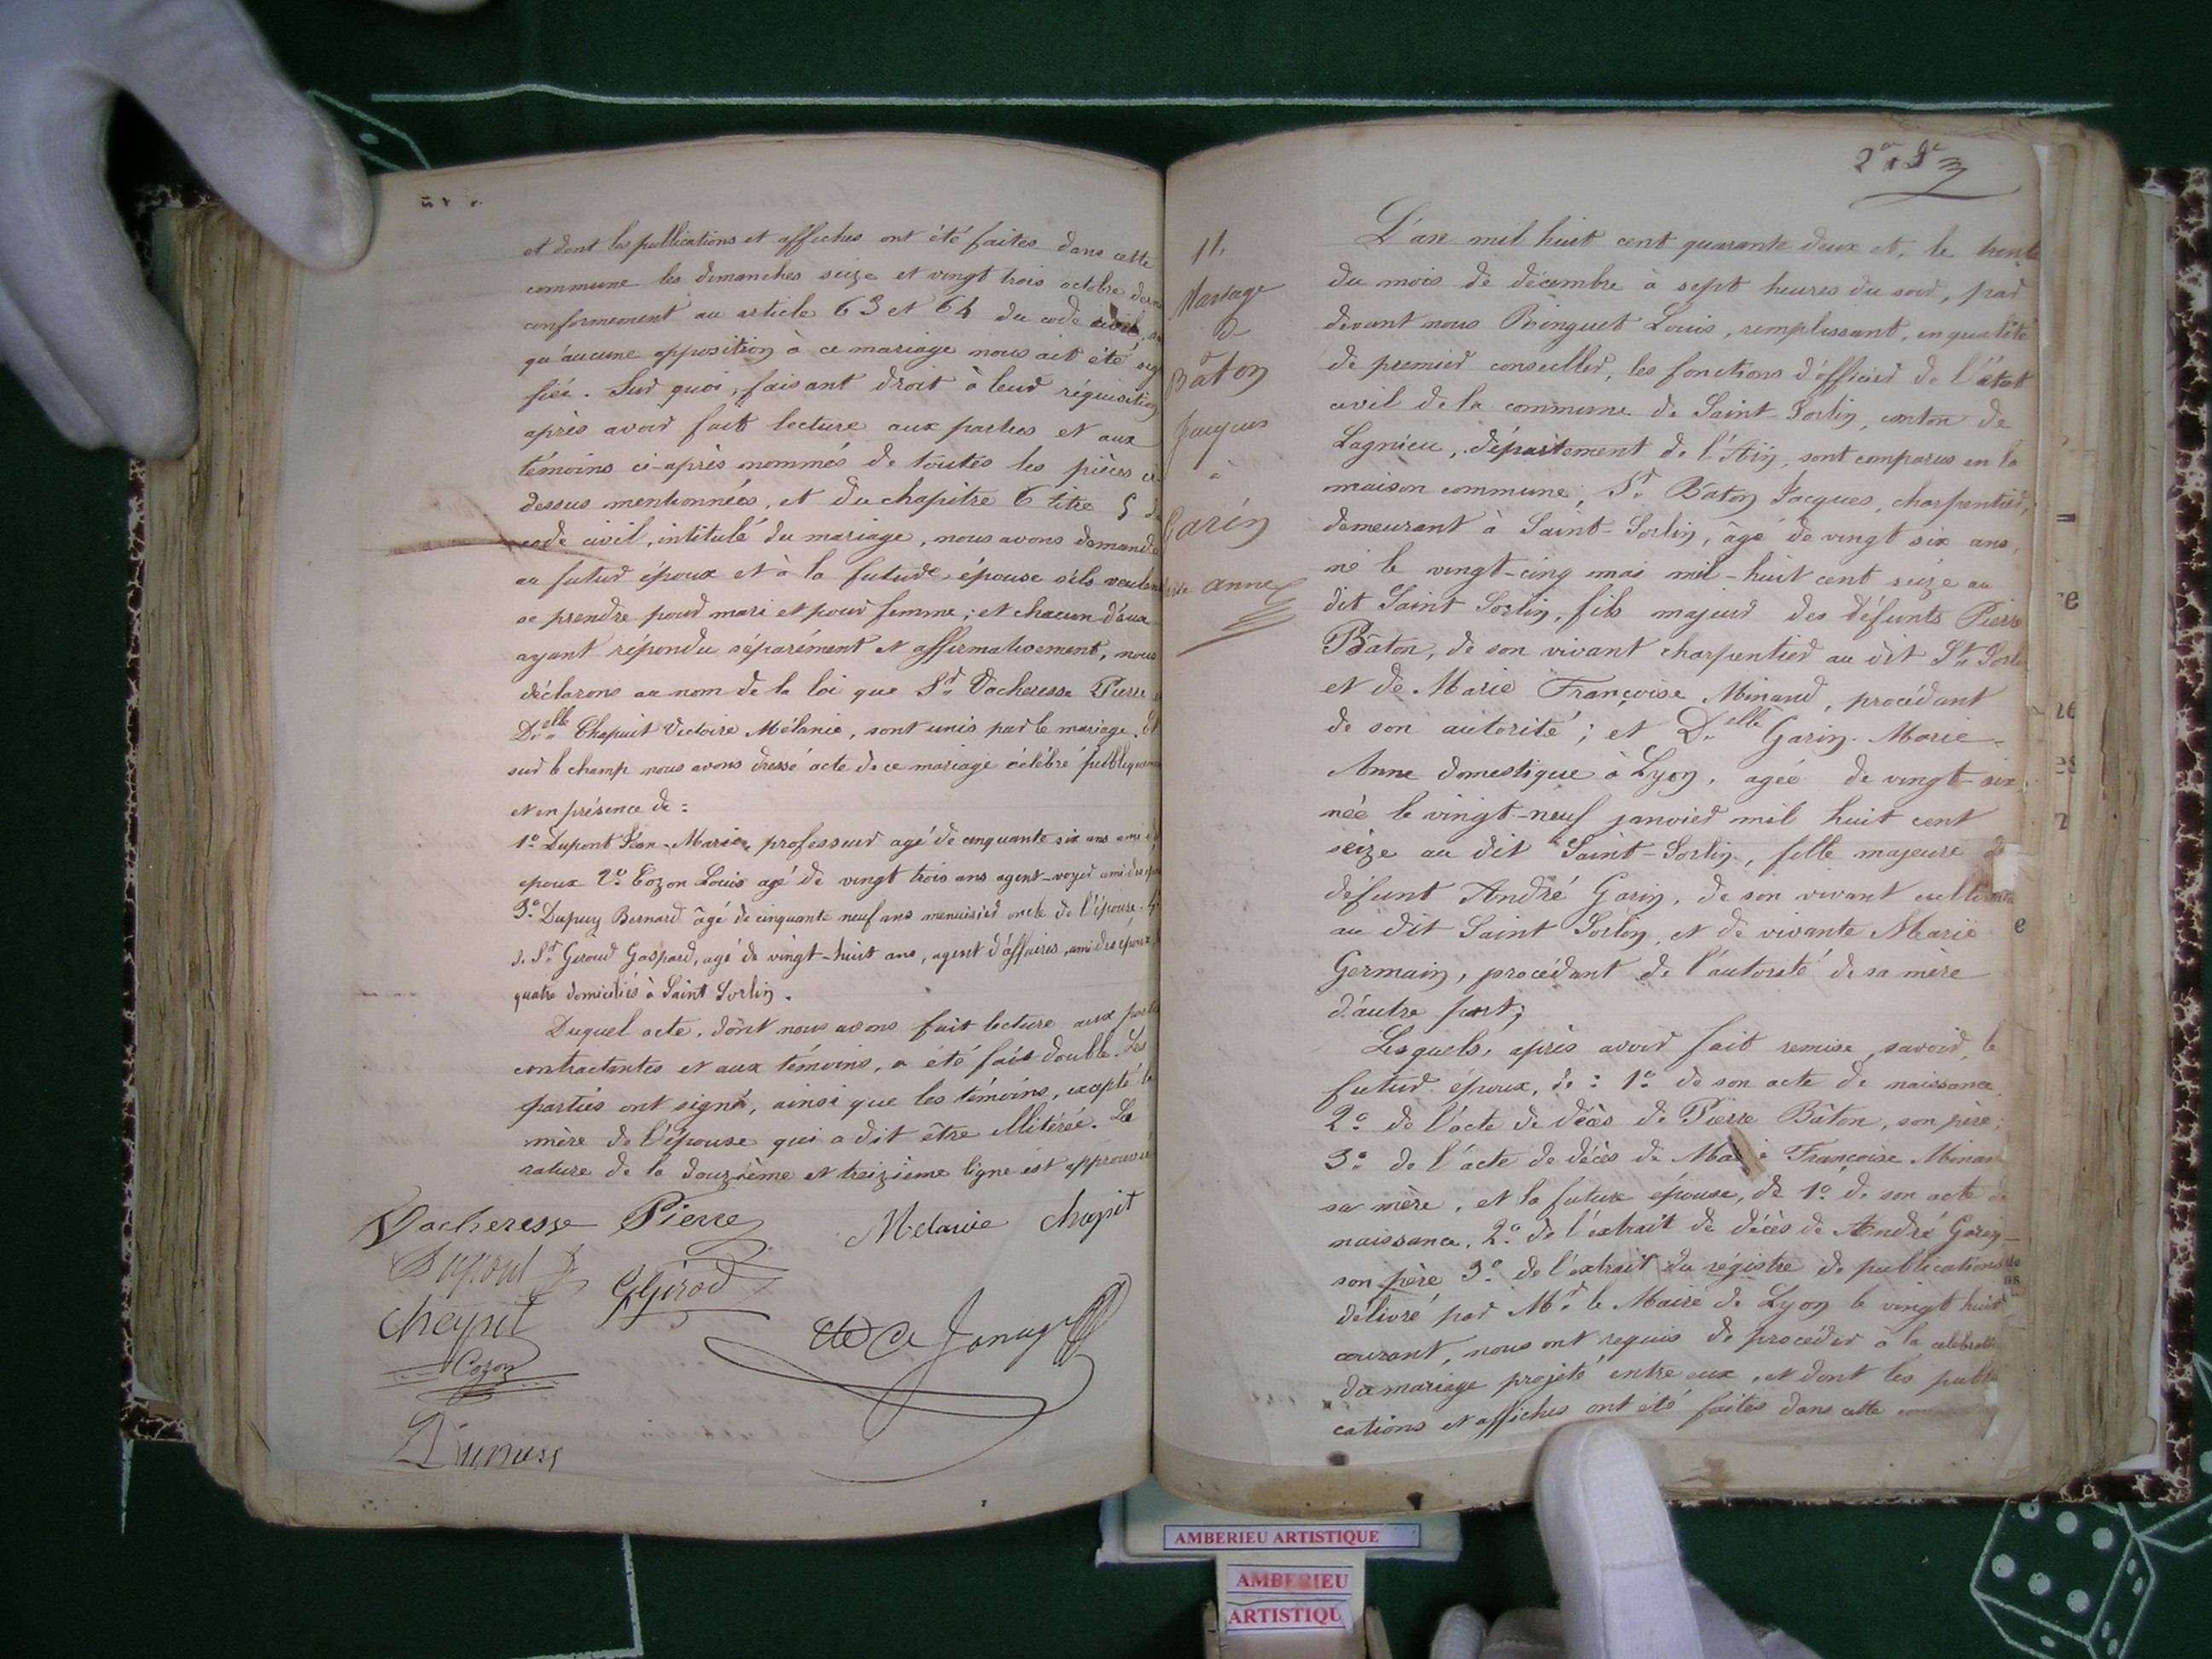 et dont les publications et affiches ont été faites dans cette
commune les dimanches seize et vingt trois octobre
conformement au article 63 et 64 du code civil,
qu'aucune opposition à ce mariage nous ait été
fiée. Sur quoi, faisant droit à leur réquisition
après avoir fait lecture aux parties et aux
témoins ci-après nommés de toutes les pièces ci
dessus mentionnées, et du chapitre 6 titre 5
code civil, intitulé du mariage, nous avons demandé
au futur époux et à la future épouse s'ils veulent
se prendre pour mari et pour femme; et chacun d'eux
ayant répondu séparément et affirmativement, nous
déclarons au nom de la loi que Sr. Vacheresse Pierre
Delle Chapuit Victoire Mélanie, sont unis par le mariage. Et
sur le champ nous avons dressé acte de ce mariage célébré publiquement
et en présence de :
1o. Dupont Jean-Marie, professeur agé de cinquante six ans ami
epoux 2o. Cozon Louis agé de vingt trois ans agent-voyer ami des
3o. Dupuy Bernard âgé de cinquante neuf ans menuisier oncle de l'épouse. 4o
Sr. Giroud Gaspard, agé de vingt-huit ans, agent d'affaires, ami des époux,
quatre domiciliés à Saint Sorlin.
Duquel acte, dont nous avons fait lecture aux parties
contractantes et aux témoins, a été fait double. Les
parties ont signé, ainsi que les témoins, excepté la
mère de l'épouse qui a dit être illitérée. La
rature de la douzième et treizième ligne est approuvée
Vacheresse Pierre
Melanie Chapit
Dupont
GGirod
Chapit
Cozon
2
11.
Mariage
de
Bâton
Jacques
à
Garin
Marie Anne
L'an mil huit cent quarante deux et, le trente
du mois de décembre à sept heures du soir, par
devant nous Binguet Louis, remplissant, en qualité
de premier conseiller, les fonctions d'officier de l'état
civil de la commune de Saint-Sorlin, canton de
Lagnieu, département de l'Ain, sont comparus en la
maison commune, Sr. Bâton Jacques, charpentier,
demeurant à Saint-Sorlin, âgé de vingt six ans,
né le vingt-cinq mai mil-huit cent seize au
dit Saint Sorlin, fils majeur des défunts Pierre
Bâton, de son vivant charpentier au dit St. Sorlin
et de Marie Françoise Minand, procédant
de son autorité; et Delle Garin Marie-
Anne domestique à Lyon, agée de vingt-six
née le vingt-neuf janvier mil huit cent
seize au dit Saint-Sorlin, fille majeure de
défunt André Garin, de son vivant cultivateur
au dit Saint Sorlin, et de vivante Marie
Germain, procédant de l'autorité de sa mère
d'autre part;
Lesquels, après avoir fait remise, savoir, le
futur époux, de : 1o. de son acte de naissance,
2o. de l'acte de décès de Pierre Bâton, son père;
3o. de l'acte de décès de Marie Françoise Minan
sa mère, et la future épouse, de 1o. de son acte de
naissance, 2o. de l'extrait de décès de André Garin-
son père 3o. de l'extrait du régistre de publications
délivré par Mr. le Maire de Lyon le vingt huit
courant, nous ont requis de procéder à la celebration
du mariage projeté entre eux, et dont les publi
cations et affiches ont été faites dans cette
AMBERIEU ARTISTIQUE
AMBERIEU
ARTISTIQU